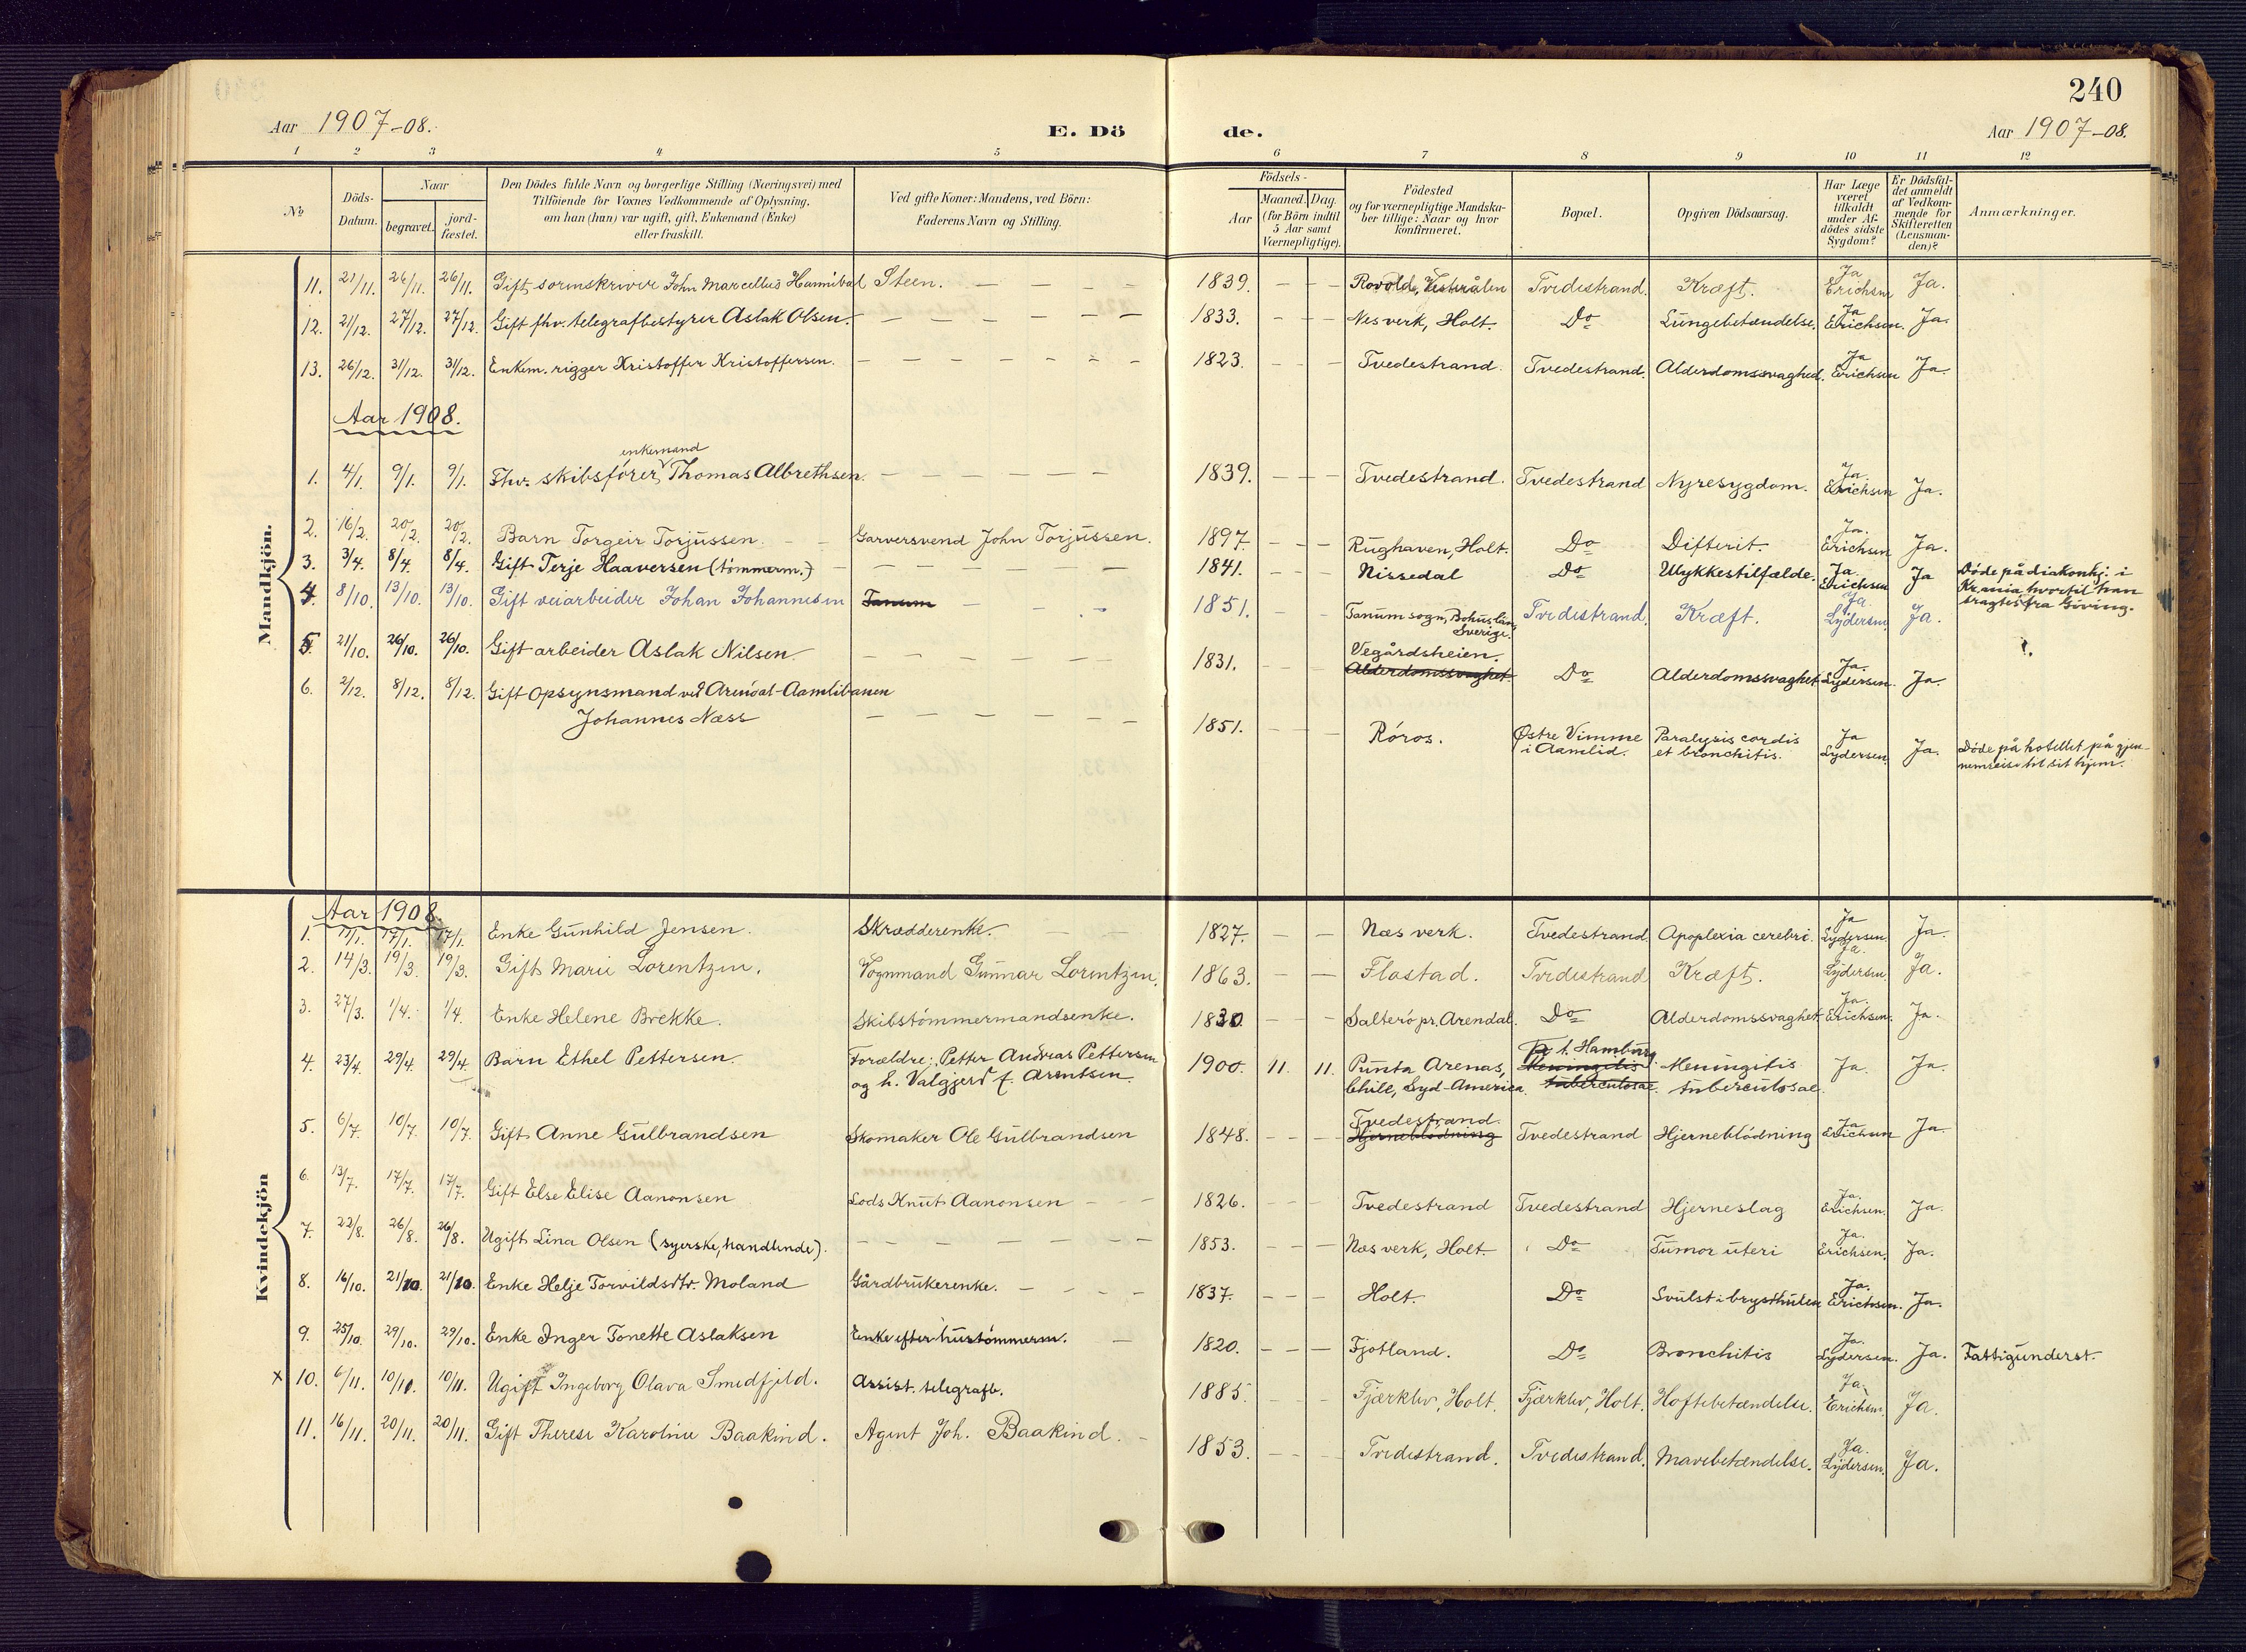 240
Aar 1907-08. E. Dö de. Aar 1907-08.
1 2 3 4 5 6 7 8 9 10 11 12
No
Döds-Datum.
Naar
begravet.
jordfæstet.
Den Dödes fulde Navn og borgerlige Stilling (Næringsvei) med
Tilföiende for Voxnes Vedkommende af Oplysning,
om han (hun) var ugift, gift, Enkemand (Enke)
eller fraskilt.
Ved gifte Koner: Mandens, ved Börn:
Faderens Navn og Stilling.
Födsels-
Aar
Maaned. Dag.
(for Börn indtil
5 Aar samt
Værnepligtige).
Födested
og for værnepligtige Mandska-
ber tillige: Naar og hvor
konfirmeret.
Bopæl.
Opgiven Dödsaarsag.
Har Læge
været
tilkaldt
under Af-
dödes sidste
Sygdom?
Er Dödsfal-
det anmeldt
af Vedkom-
mende for
Skifteretten
(Lensman-
den)?
Anmærkninger.
Mandkjön.
11. 21/11. 26/11. 26/11. Gift sorenskriver John Marcellus Hannibal Steen. 1839. Rovold, Vesterålen Tvedestrand. Kræft. Ja Erichsen Ja.
12. 21/12. 27/12. 27/12. Gift fhv. telegrafbestyrer Aslak Olsen. 1833. Nes verk, Holt. Do Lungebetændelse. Ja Erichsen. Ja.
13. 26/12. 31/12. 31/12. Enkem. rigger Kristoffer Kristoffersen. 1823. Tvedestrand. Tvedestrand. Alderdomssvaghed. Ja Erichsen Ja.
Aar 1908.
enkemand
1. 4/1. 9/1. 9/1. Fhv. skibsförer Thomas Albrethsen. 1839. Tvedestrand. Tvedestrand Nyresygdom. Ja. Erichsen Ja.
2. 16/2. 20/2. 20/2. Barn Torgeir Torjussen. Garversvend John Torjussen. 1897. Rughaven, Holt. Do Difterit. Ja. Erichsen Ja.
3. 3/4. 8/4. 8/4. Gift Terje Haaversen (tömmerm.) 1841. Nissedal Do Ulykkestilfælde. Ja. Erichsen Ja Döde på diakonhj. i
Kr.ania, hvortil han
bragtes fra Gjving.
4. 8/10. 13/10. 13/10. Gift veiarbeider Johan Johannesen Tanum 1851. Tanum sogn, Bohuslän,
Sverige. Tvedestrand. Kræft. Ja. Lydersen Ja.
5. 21/10. 26/10. 26/10. Gift arbeider Aslak Nilsen 1831. Vegårdsheien.
Alderdomssvaghet. Do Alderdomssvaghet Ja. Lydersen. Ja.
6. 2/12. 8/12. 8/12. Gift Opsynsmand ved Arendal-Aamlibanen
Johannes Næss 1851. Röros. Østre Vimme
i Aamlid. Paralysis cordis
et bronchitis. Ja Lydersen. Ja. Döde på hotellet på gjen-
nemreise til sit hjem.
Kvindekjön
Aar 1908.
1. 11/1. 17/1. 17/1. Enke Gunhild Jensen. Skrædderenke. 1827. Næs verk. Tvedestrand Apoplexia cerebri. Ja Lydersen. Ja.
2. 14/3. 19/3. 19/3. Gift Marie Lorentzen. Vognmand Gunnar Lorentzen. 1863. Flostad. Tvedestrand Kræft. Ja. Lydersen Ja.
3. 27/3. 1/4. 1/4. Enke Helene Brekke. Skibstömmermandsenke. 1830. Salterö pr. Arendal. Do Alderdomssvaghet Ja. Erichsen. Ja.
4. 23/4. 29/4. 29/4. Barn Ethel Pettersen. Forældre: Petter Andreas Pettersen
og h. Valgjerd f. Arentsen. 1900. 11. 11. Punta Arenas,
Chile, Syd-America. p. t. Hamburg.
Meningitis
tuberculosae. Meningitis
tuberculosae. Ja. Ja.
5. 6/7. 10/7. 10/7. Gift Anne Gulbrandsen Skomaker Ole Gulbrandsen 1848. Tvedestrand.
Hjerneblödning Tvedestrand Hjerneblödning Ja Erichsen Ja.
6. 13/7. 17/7. 17/7. Gift Else Elise Aanonsen Lods Knut Aanonsen 1826. Tvedestrand Tvedestrand Hjerneslag Ja. Erichsen. Ja.
7. 22/8. 26/8. 26/8. Ugift Lina Olsen (syerske, handlende). 1853. Næs verk, Holt Do Tumor uteri Ja. Erichsen. Ja.
8. 16/10. 21/10. 21/10. Enke Helje Torvildsdtr. Moland Gårdbrukerenke. 1837. Holt. Do Svulst i brysthulen Ja. Erichsen. Ja.
9. 25/10. 29/10. 29/10. Enke Inger Tonette Aslaksen Enke efter hustömmerm. 1820. Fjotland. Do Bronchitis Ja. Lydersen. Ja. Fattigunderst.
x 10. 6/11. 10/11. 10/11. Ugift Ingeborg Olava Smedfjeld. Assist. telegrafb. 1885. Fjærklev, Holt. Fjærklev, Holt. Hoftebetændelse. Ja. Erichsen. Ja.
11. 16/11. 20/11. 20/11. Gift Therese Karoline Baakind. Agent Joh. Baakind. 1853. Tvedestrand. Tvedestrand. Mavebetændelse. Ja. Lydersen. Ja.